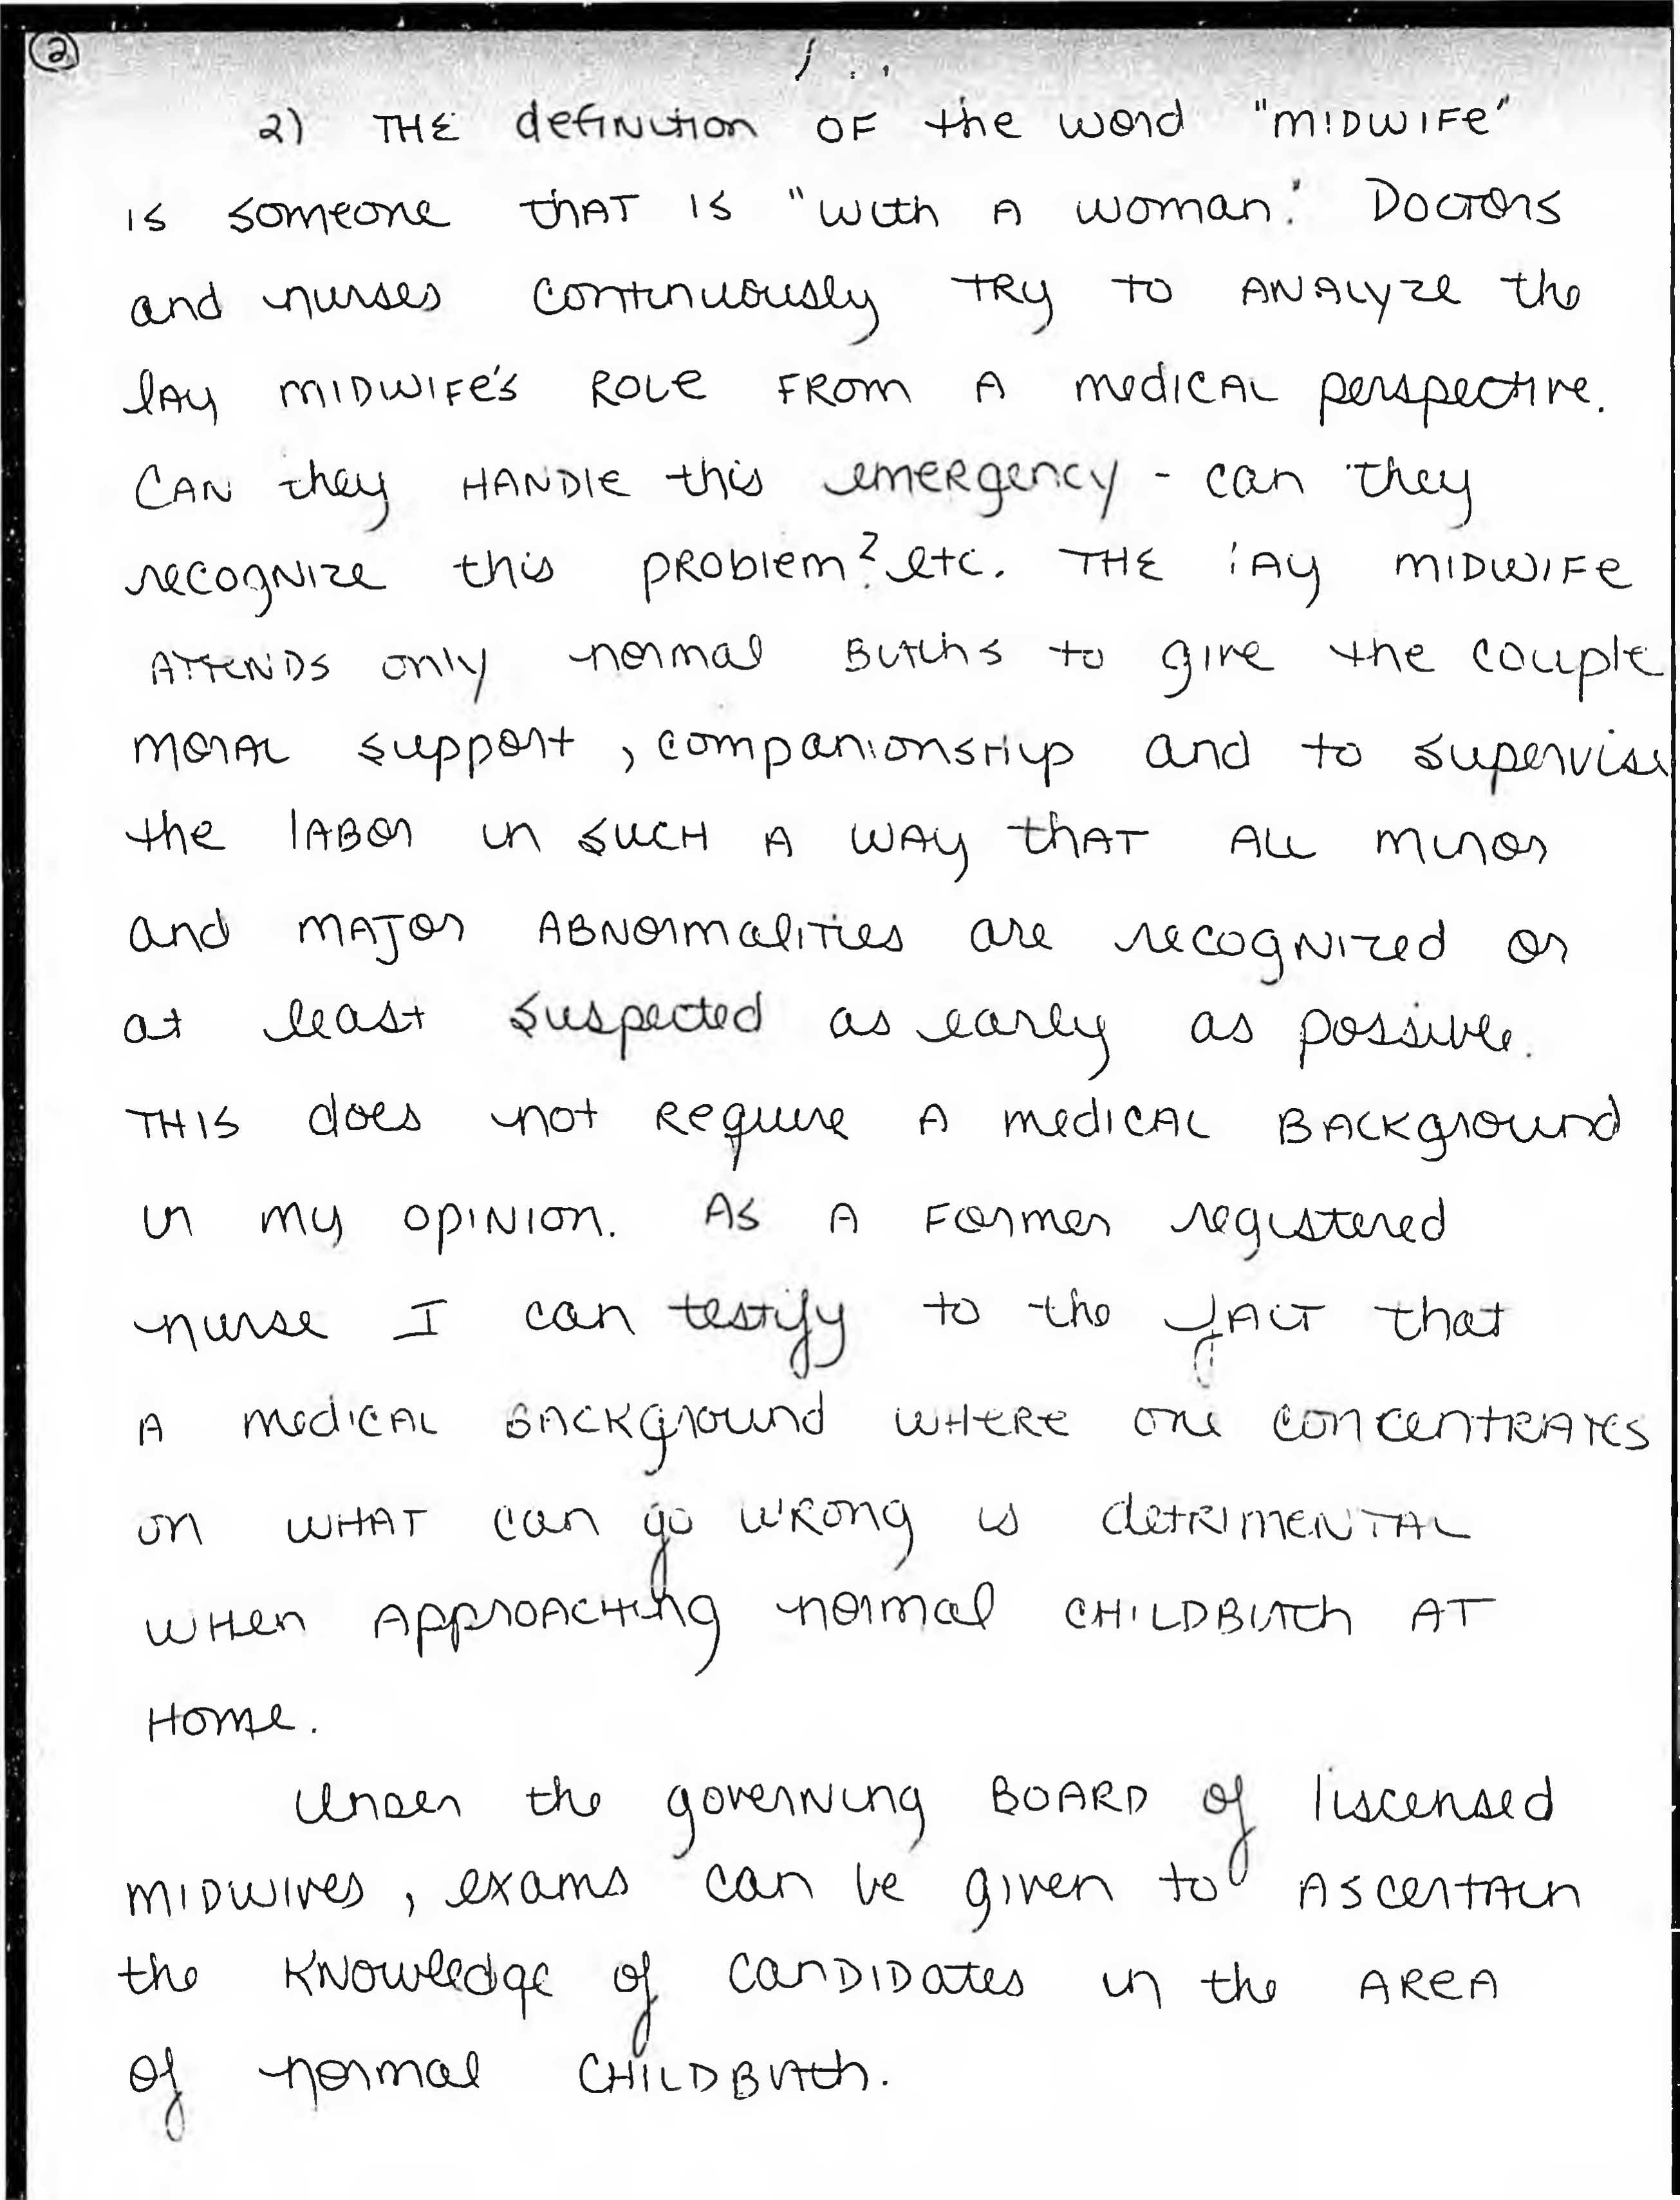 ②
2) THE definition OF the word "MIDWIFE"
is someone that is "with A woman." Doctors
and nurses continuously TRY to ANALYZE the
lay MIDWIFE's ROLE FROM A medical perspective.
CAN they HANDLE this emergency - can they
recognize this problem? etc. THE lay MIDWIFE
ATTENDS only normal Births to give the couple
moral support, companionship and to supervise
the labor in such A way that ALL minor
and MAJOR ABNormalities are recognized or
at least suspected as early as possible.
THIS does not Require A medical BACKground
in my opinion. AS A Former registered
nurse I can testify to the fact that
A medical BACKground WHERE one concentrates
on WHAT can go wrong is detrimental
WHen Approaching normal CHILDBirth AT
Home.
Under the governing BOARD of liscensed
MIDWIVES, exams can be given to Ascertain
the Knowledge of canDIDates in the AREA
of normal CHILDBirth.